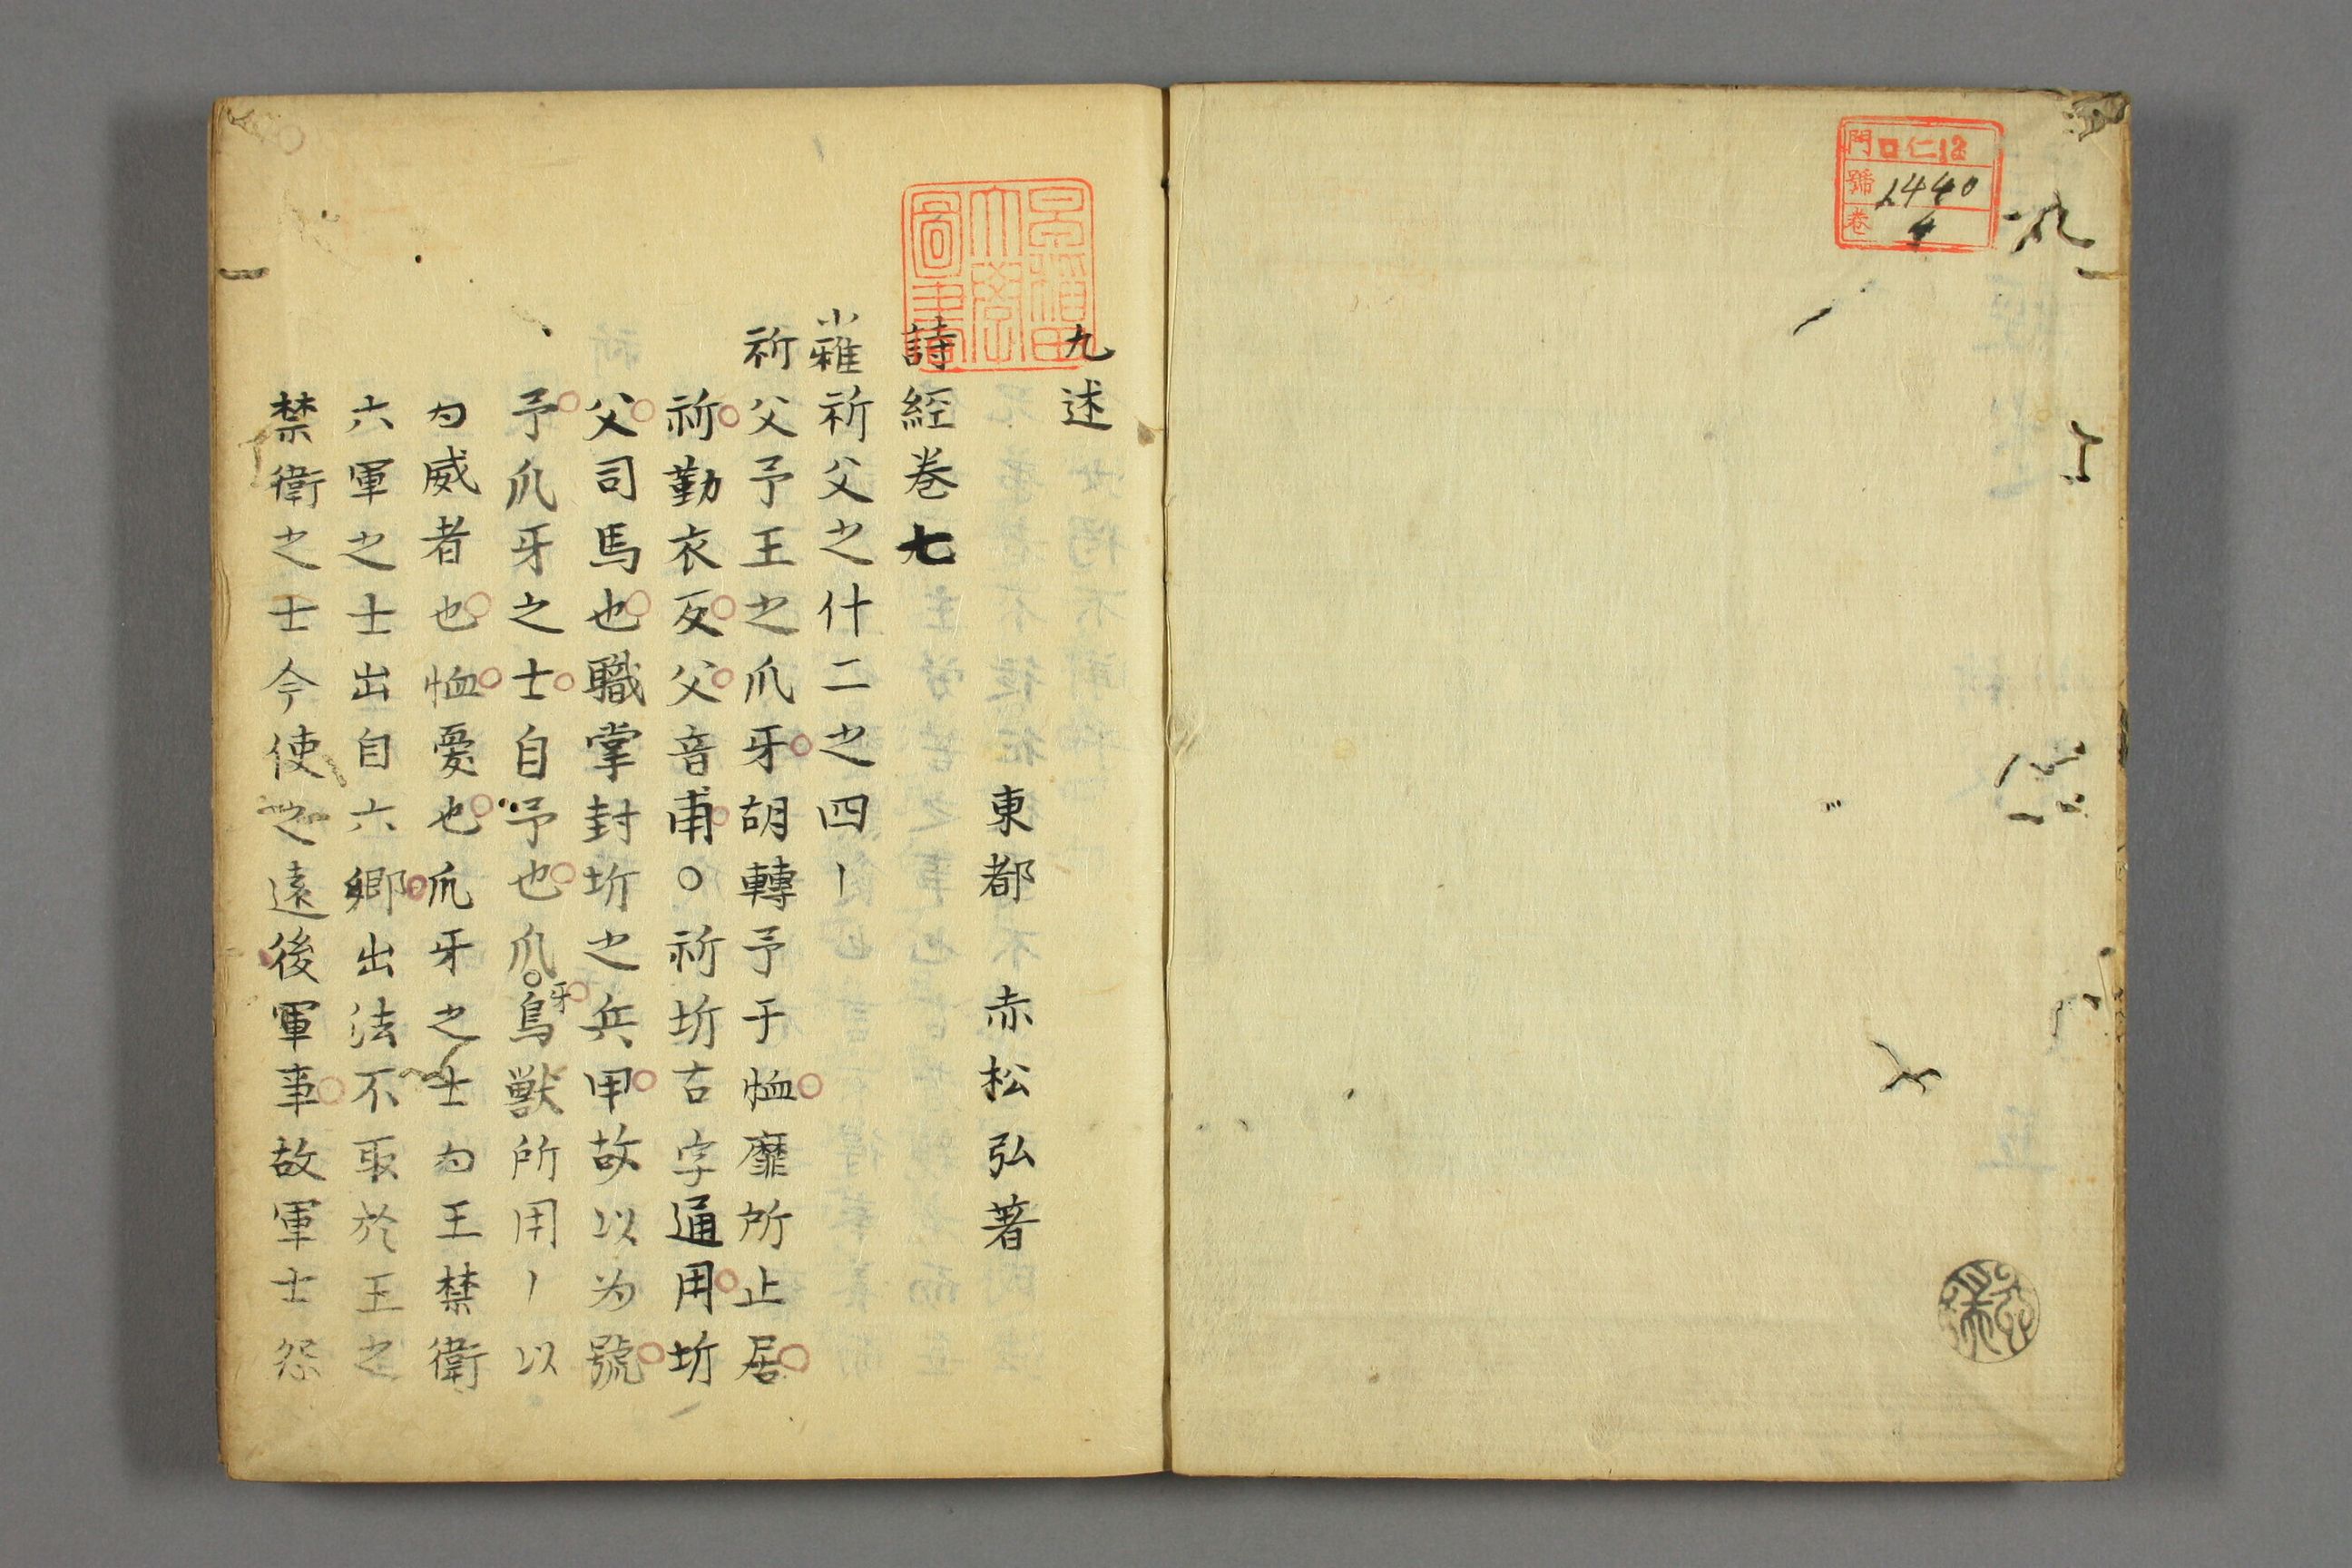 門 ロ仁12
號 1440
卷 4
早稲田大學圖書
九述
東都 赤松弘著
詩經卷七
小雅祈父之什二之四丨
祈父予王之爪牙胡轉予于恤靡所止居
祈勤衣反父音甫○祈圻古字通用圻
父司馬也職掌封圻之兵甲故以为號
予爪牙之士自予也爪牙鳥獸所用丨以
为威者也恤憂也爪牙之士为王禁衛
六軍之士出自六鄉出法不取於王之
禁衛之士今使之遠後軍事故軍士怨